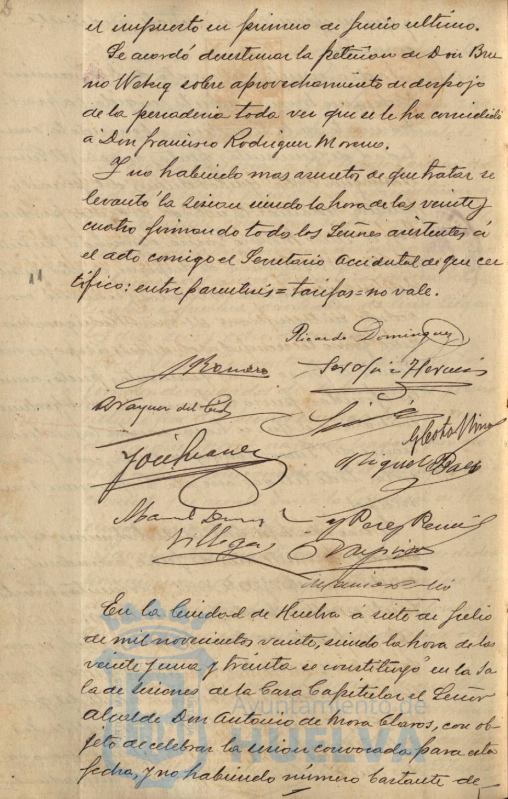 el impuesto en primero de Junio ultimo.
Se acordó desestimar la peticion de Don Bru
no Wetzig sobre aprovechamiento de despojo
de la penaderia toda vez que se le ha concedido
á Don Francisco Rodriguez Moreno.
Y no habiendo mas asuntos de que tratar se
levantó la sesion siendo la hora de las veinte y
cuatro firmando todos los Señores asistentes á
el acto comigo el Secretario Accidental de que cer
tifico: entre parentesis = tarifas = no vale.
Ricardo Dominguez
J Romero
José Suarez
Miguel Baez
Manuel
Villegas
y Perez
En la Ciudad de Huelva á siete de Julio
de mil novecientos veinte, siendo la hora de las
veinte y una y treinta se constituyó en la Sa
la de sesiones de la Casa Capitular el Señor
Alcalde Don Antonio de Mora Claros, con ob-
jeto de celebrar la sesion convocada para esta
fecha, y no habiendo número bastante de
Ayuntamiento de
HUELVA